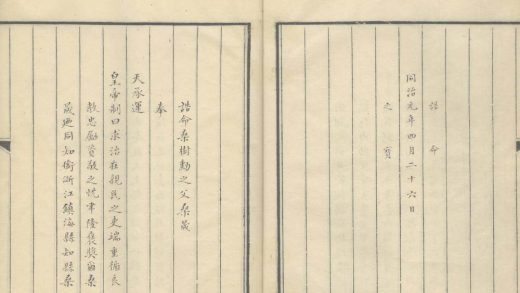 誥命
同治元年四月二十六日
之寶
誥命桑樹勳之父桑晟
奉
天承運
皇帝制曰求治在親民之吏端重循良
教忠勵資敬之忱聿隆褒獎爾桑
晟迺同知銜浙江鎮海縣知縣桑